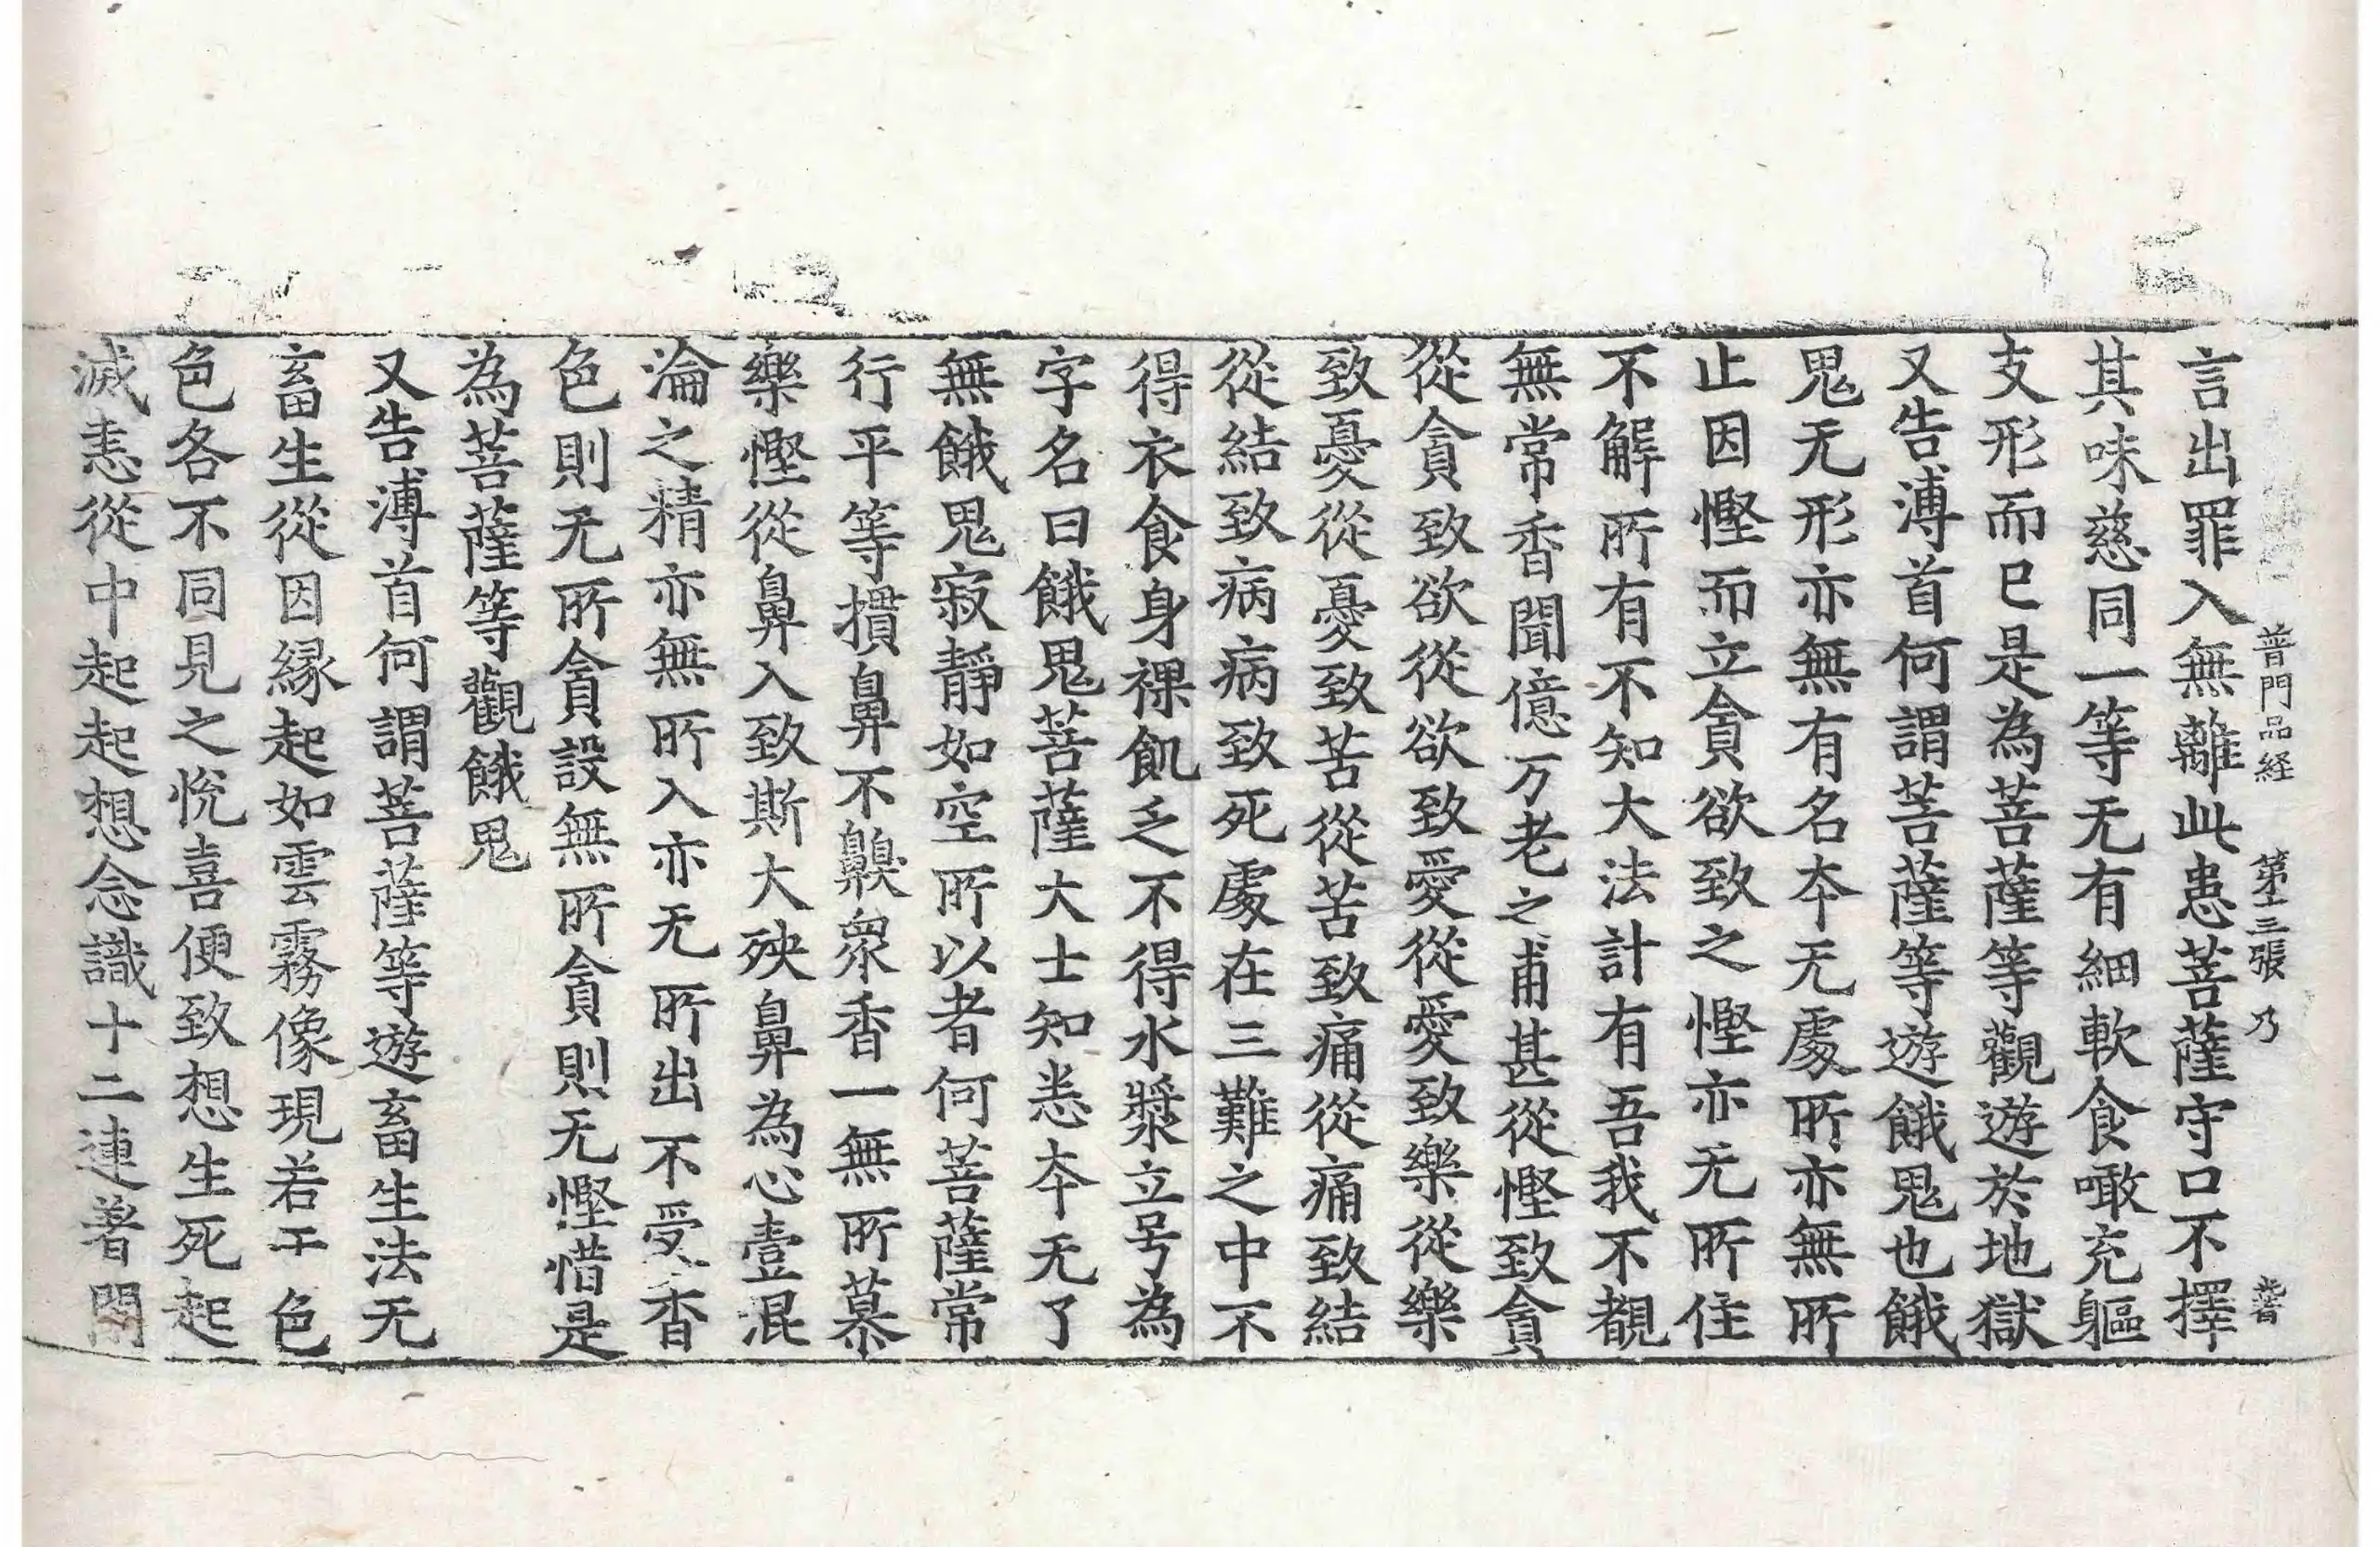 普門品経 第十三張 乃
言出罪入無離此患菩薩守口不擇
其味慈同一等无有細軟食噉充軀
支形而已是為菩薩等觀遊於地獄
又告溥首何謂菩薩等遊餓鬼也餓
鬼无形亦無有名夲无處所亦無所
止因慳而立貪欲致之慳亦无所住
不解所有不知大法計有吾我不覩
無常香聞億万老之甫甚從慳致貪
從貪致欲從欲致愛從愛致樂從樂
致憂從憂致苦從苦致痛從痛致結
從結致病病致死處在三難之中不
得衣食身裸飢乏不得水漿立号為
字名曰餓鬼菩薩大士知恙夲无了
無餓鬼寂靜如空所以者何菩薩常
行平等攢鼻不齅衆香一無所慕
樂慳從鼻入致斯大殃鼻為心壹混
淪之精亦無所入亦无所出不受香
色則无所貪設無所貪則无慳惜是
為菩薩等觀餓鬼
又告溥首何謂菩薩等遊畜生法无
畜生從因緣起如雲霧像現若干色
色各不同見之悅喜便致想生死起
滅恚從中起起想念識十二連著閇